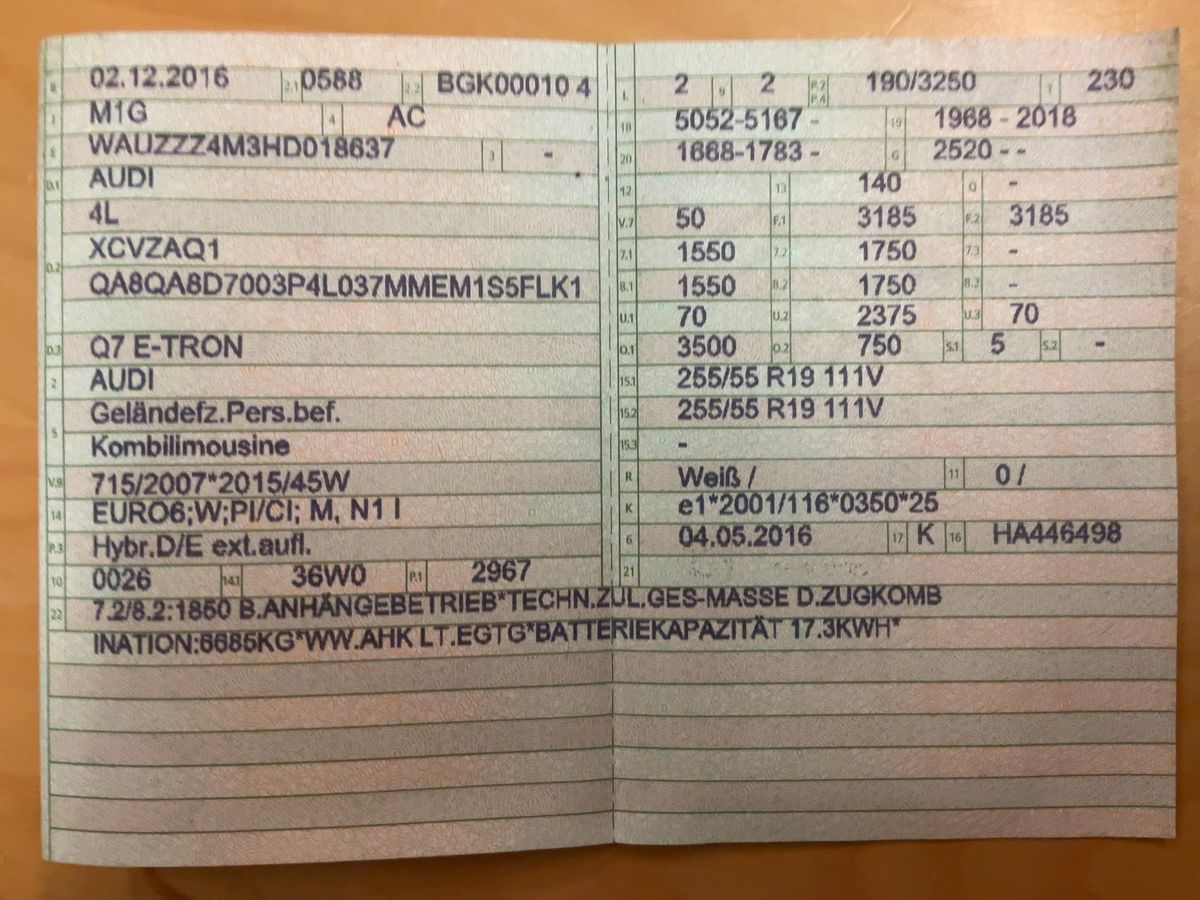 B 02.12.2016 2.1 0588 2.2 BGK00010 4
J M1G 4 AC
E WAUZZZ4M3HD018637 3 -
D.1 AUDI
4L
XCVZAQ1
D.2
QA8QA8D7003P4L037MMEM1S5FLK1
D.3 Q7 E-TRON
2 AUDI
Geländefz.Pers.bef.
5
Kombilimousine
V.9 715/2007*2015/45W
14 EURO6;W;PI/CI; M, N1 I
P.3 Hybr.D/E ext.aufl.
10 0026 14.1 36W0 P.1 2967
L 2 9 2 P.2 P.4 190/3250 T 230
18 5052-5167 - 19 1968 - 2018
20 1668-1783 - G 2520 - -
12 13 140 Q -
V.7 50 F.1 3185 F.2 3185
7.1 1550 7.2 1750 7.3 -
8.1 1550 8.2 1750 8.3 -
U.1 70 U.2 2375 U.3 70
O.1 3500 O.2 750 S.1 5 S.2 -
15.1 255/55 R19 111V
15.2 255/55 R19 111V
15.3 -
R Weiß / 11 0 /
K e1*2001/116*0350*25
6 04.05.2016 17 K 16 HA446498
21
22 7.2/8.2:1850 B.ANHÄNGEBETRIEB*TECHN.ZUL.GES-MASSE D.ZUGKOMB
INATION:6685KG*WW.AHK LT.EGTG*BATTERIEKAPAZITÄT 17.3KWH*